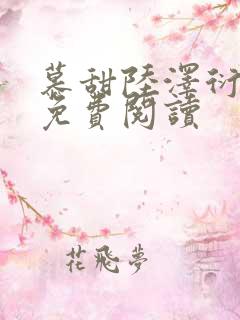 慕甜陸澤衍
免費閱讀
花飛夢